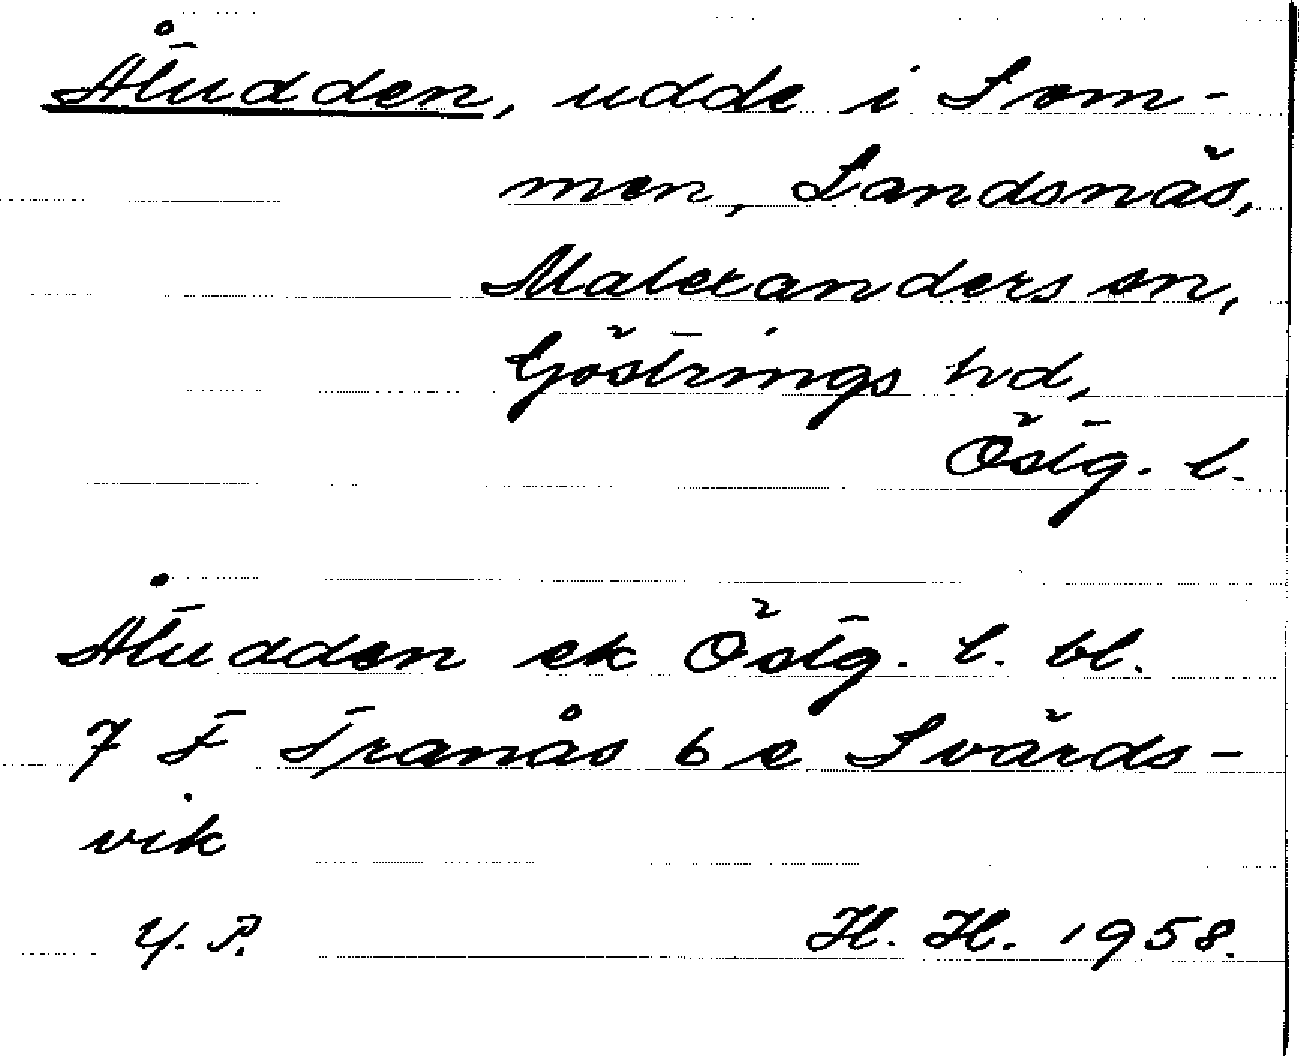 Åtudden, udde i Som-
men, Sandsnäs,
Malexanders sn,
Göstrings hd,
Östg. l.
Åtudden ek Östg. l. bl.
7 F Tranås 6 e Svärds-
vik
Y. P. H. H. 1958.